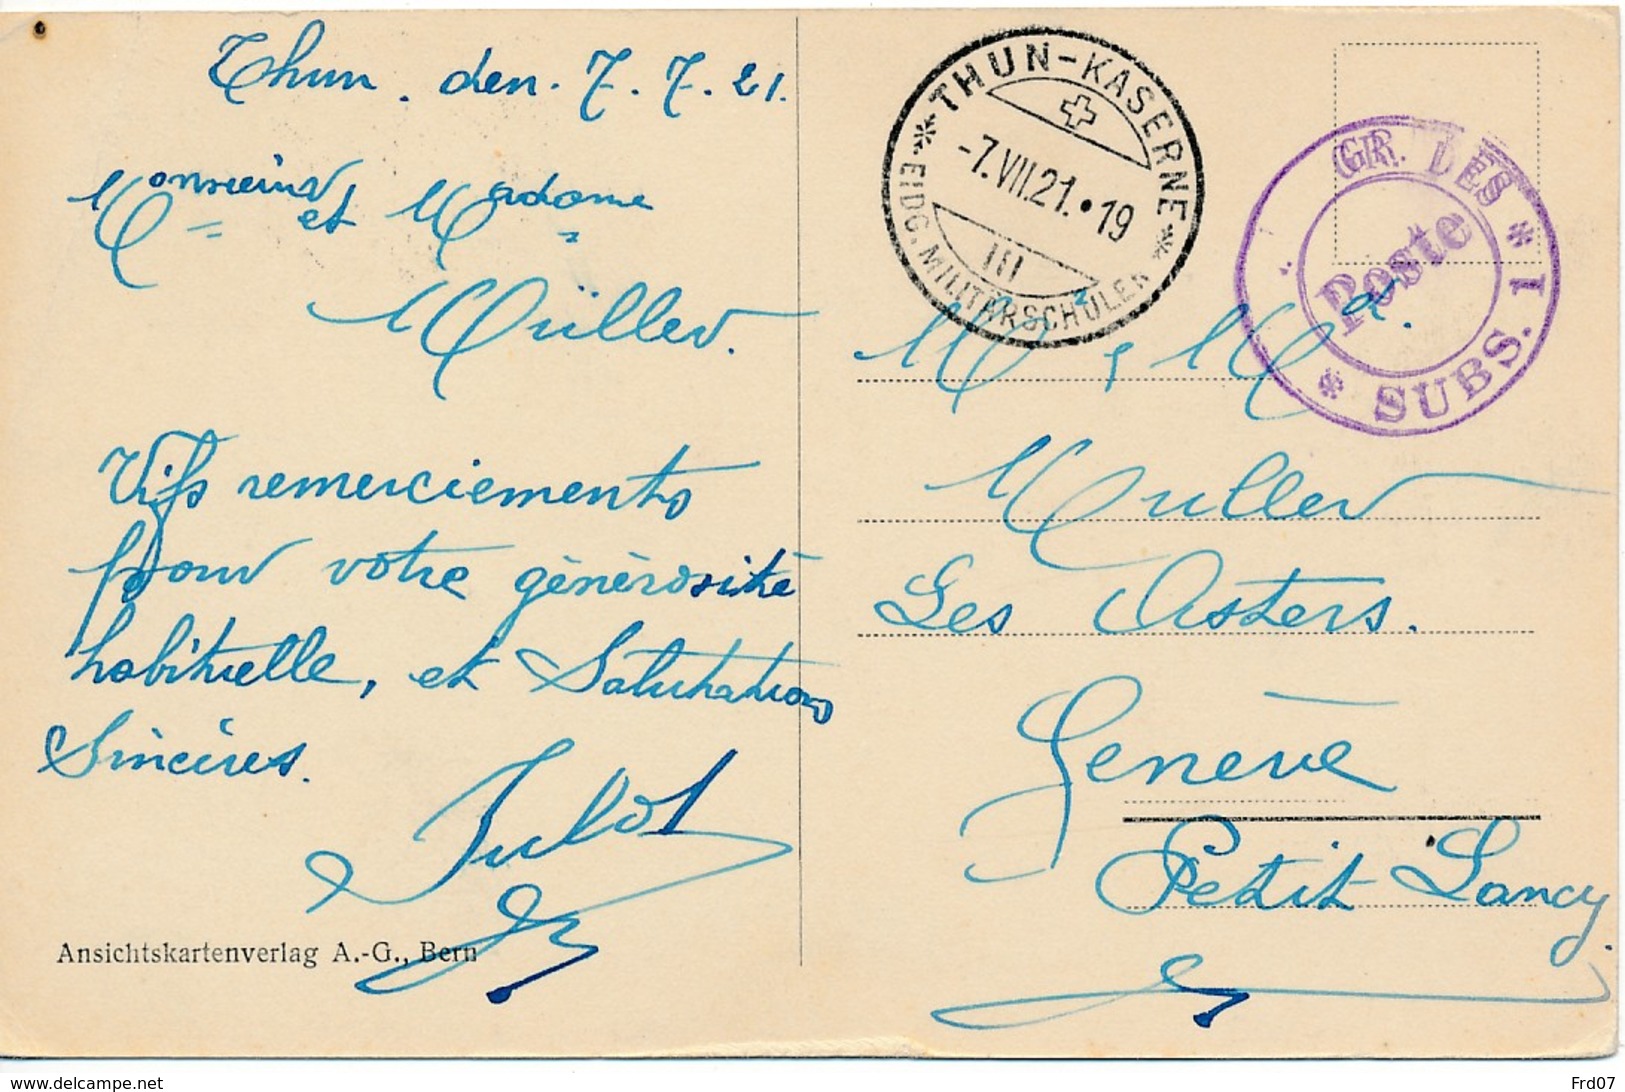 Thun. den. 7. 7. 21.
Monsieur et Madame
Müller.
Vifs remerciements
pour votre générosité
habituelle, et Salutations
Sincères.
Julot
Ansichtskartenverlag A.-G., Bern
THUN-KASERNE
-7.VII.21.•19
III
EIDG. MILITÄRSCHULEN
GR. DES
SUBS. 1
Poste
Muller
Les Asters.
Genève
Petit Lancy.
www.delcampe.net
Frd07